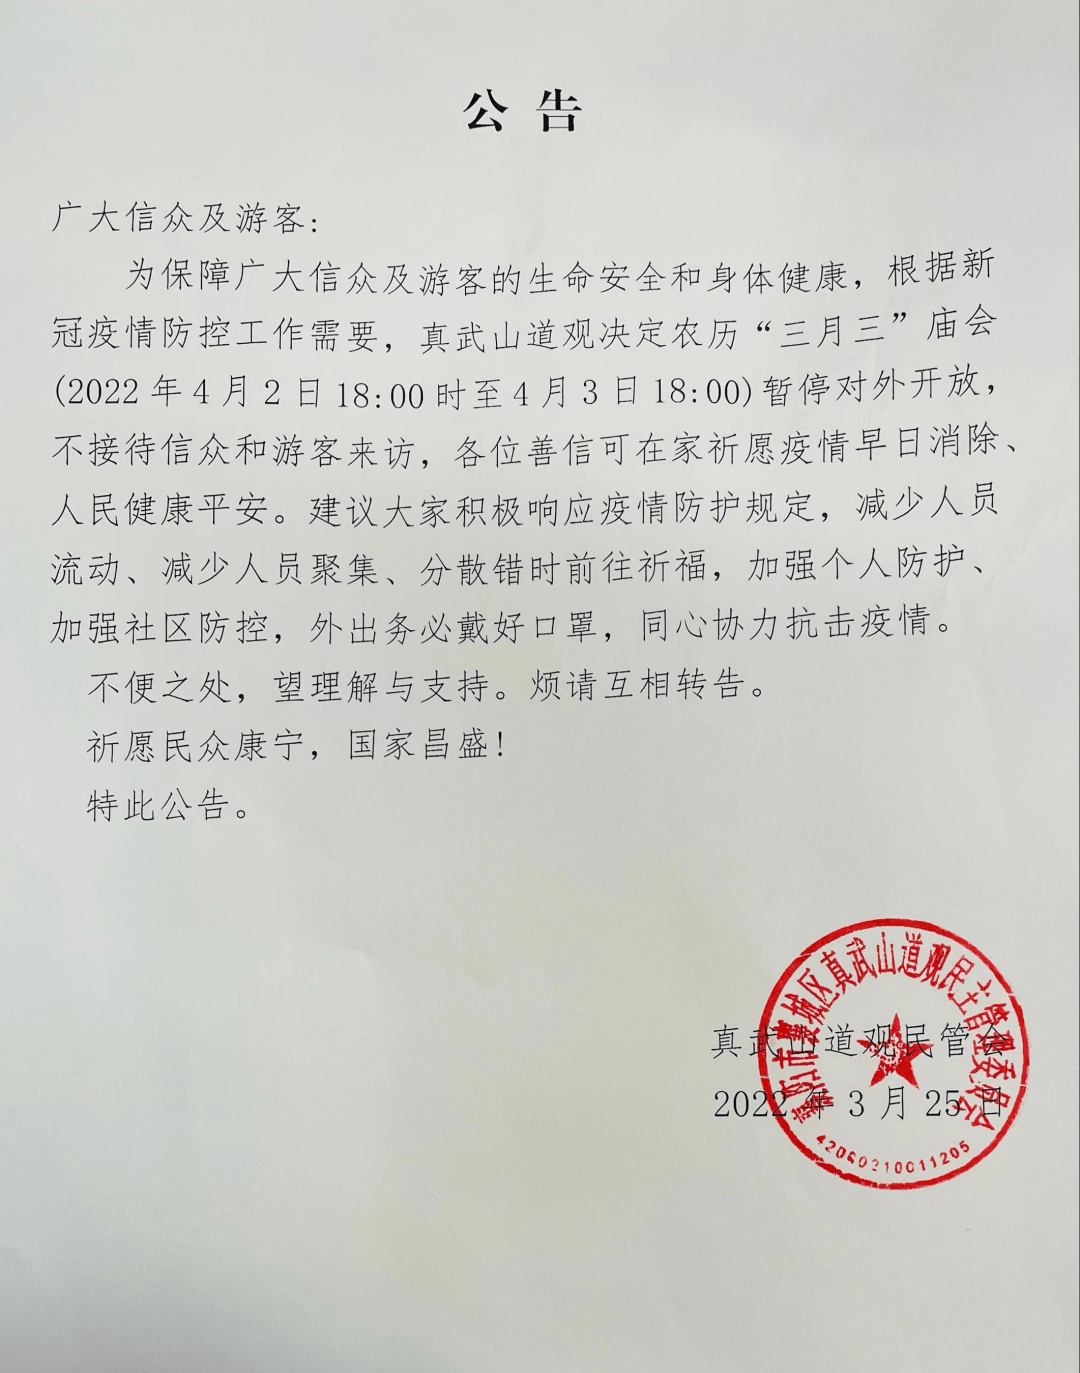 公告
广大信众及游客：
为保障广大信众及游客的生命安全和身体健康，根据新
冠疫情防控工作需要，真武山道观决定农历“三月三”庙会
(2022年4月2日18:00时至4月3日18:00)暂停对外开放，
不接待信众和游客来访，各位善信可在家祈愿疫情早日消除、
人民健康平安。建议大家积极响应疫情防护规定，减少人员
流动、减少人员聚集、分散错时前往祈福，加强个人防护、
加强社区防控，外出务必戴好口罩，同心协力抗击疫情。
不便之处，望理解与支持。烦请互相转告。
祈愿民众康宁，国家昌盛！
特此公告。
襄阳市襄城区真武山道观民主管理委员会
真武山道观民管会
2022年3月25日